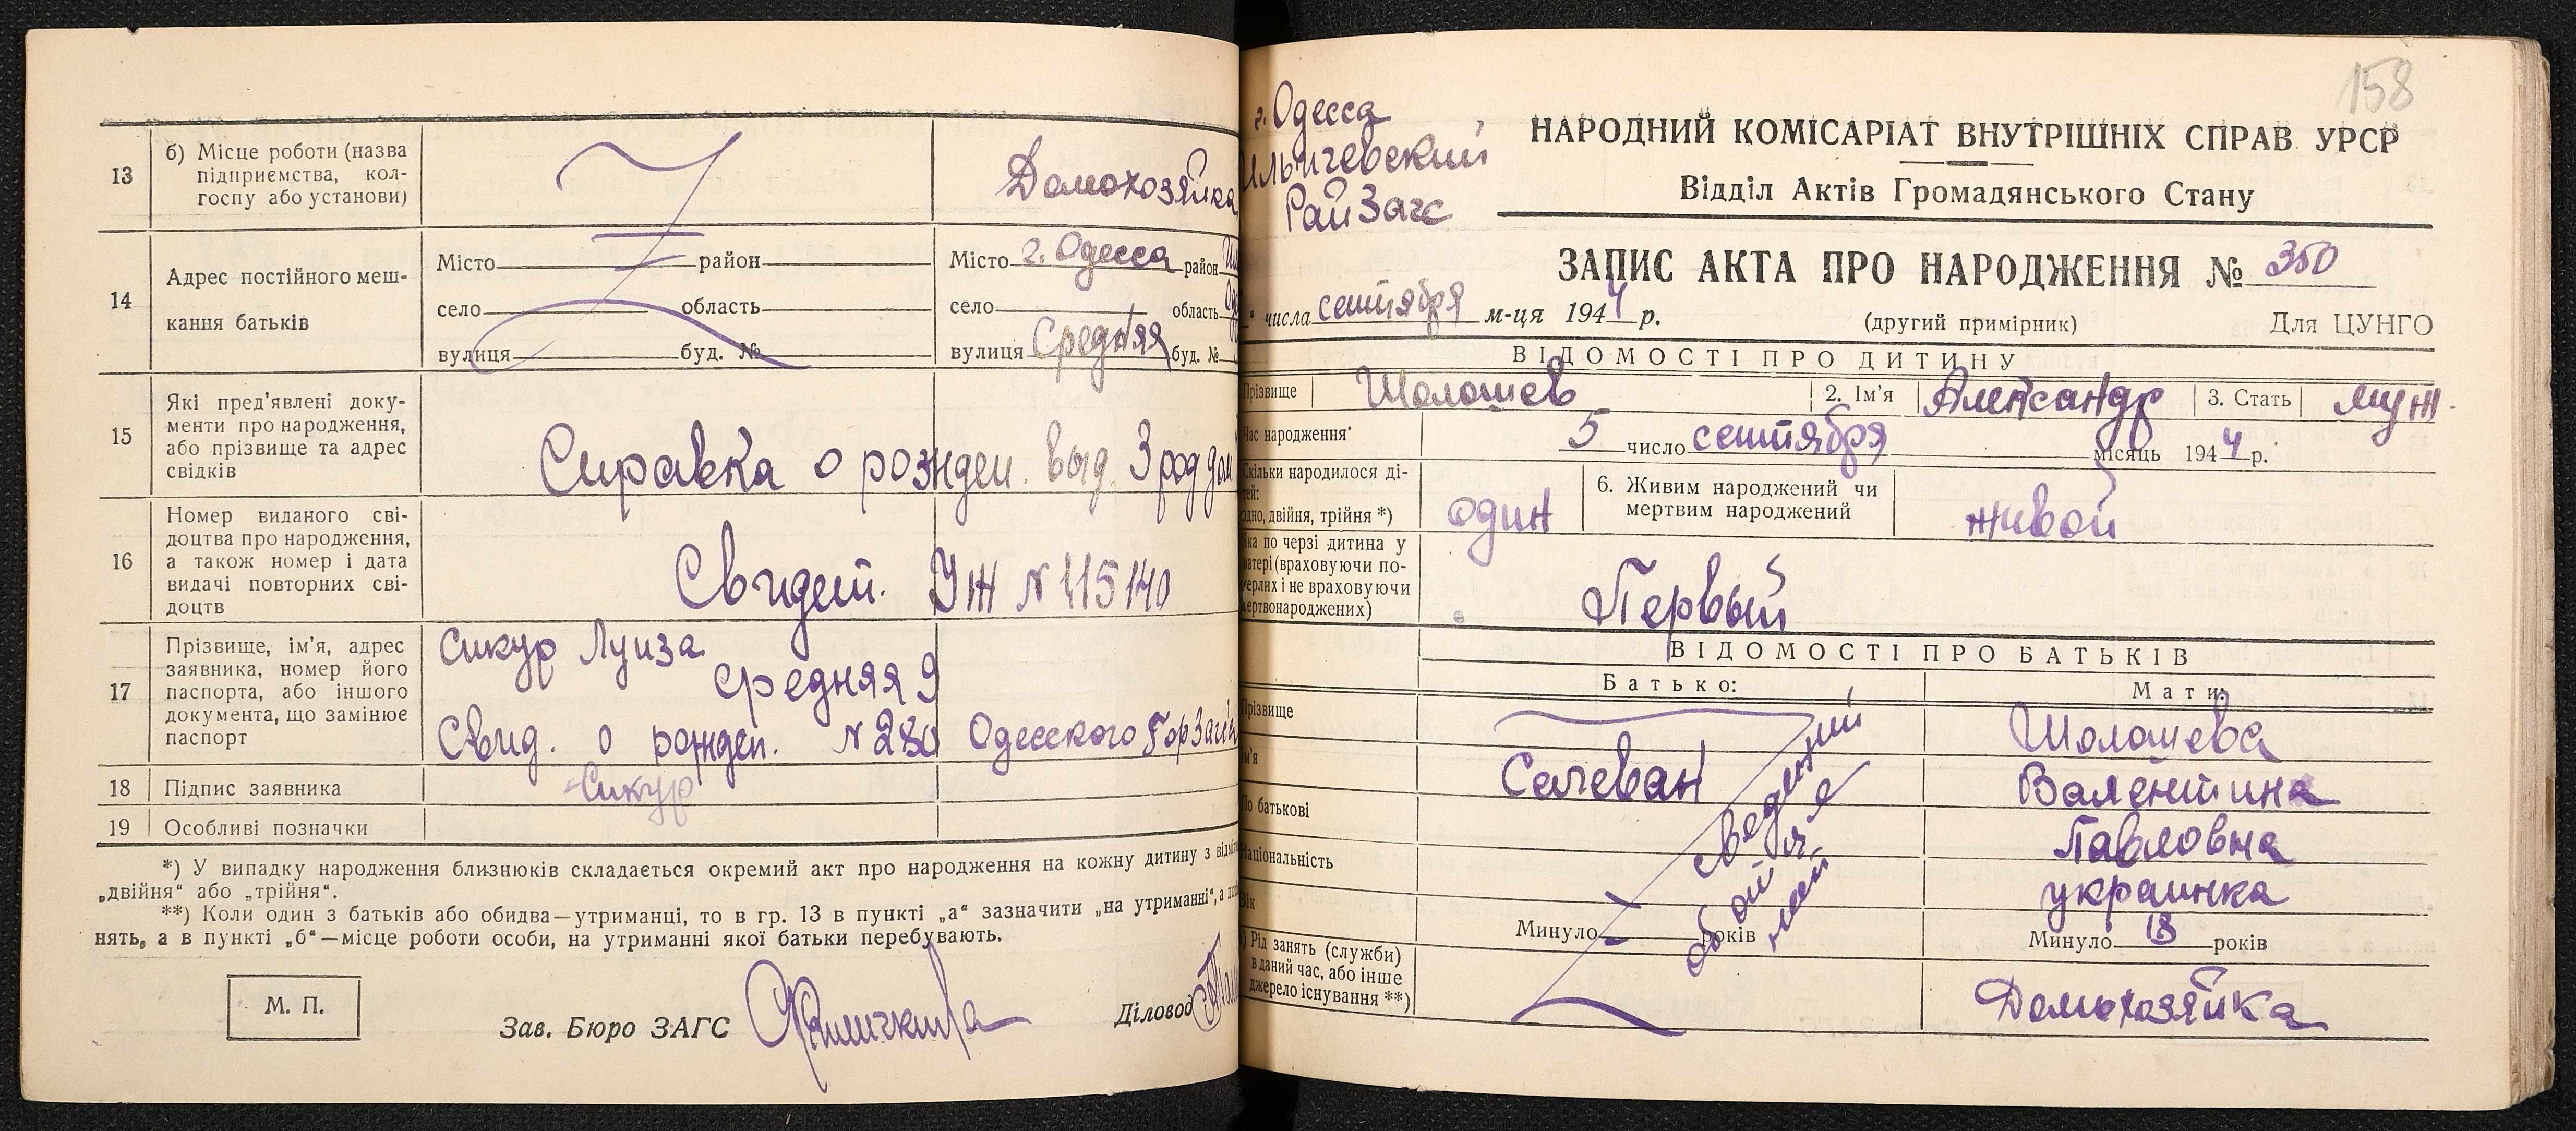 13
б) Місце роботи (назва
підприємства, кол-
госпу або установи)
Домохозяйка
14
Адрес постійного меш-
кання батьків
Місто район
село область
вулиця буд. №
Місто г. Одесса район
село область
вулиця Средняя буд. №
15
Які пред'явлені доку-
менти про народження,
або прізвище та адрес
свідків
Справка о рожден. выд. 3 род дом
16
Номер виданого сві-
доцтва про народження,
а також номер і дата
видачі повторних сві-
доцтв
Свидет. УЖ N 115140
17
Прізвище, ім'я, адрес
заявника, номер його
паспорта, або іншого
документа, що замінює
паспорт
Сикур Луиза
Средняя 9
Свид. о рожден. N 230 Одесского ГорЗагса
18
Підпис заявника
Сикур
19
Особливі позначки
*) У випадку народження близнюків складається окремий акт про народження на кожну дитину з
„двійня“ або „трійня“.
**) Коли один з батьків або обидва—утриманці, то в гр. 13 в пункті „а“ зазначити „на утриманні“, а
нять, а в пункті „б“—місце роботи особи, на утриманні якої батьки перебувають.
М. П.
Зав. Бюро ЗАГС
Діловод
158
г. Одесса
Ильичевский
РайЗагс
НАРОДНИЙ КОМІСАРІАТ ВНУТРІШНІХ СПРАВ УРСР
Відділ Актів Громадянського Стану
ЗАПИС АКТА ПРО НАРОДЖЕННЯ № 350
числа сентября м-ця 1944 р.
(другий примірник)
Для ЦУНГО
ВІДОМОСТІ ПРО ДИТИНУ
Прізвище Шолошев 2. Ім'я Александр 3. Стать муж.
Час народження 5 число сентября місяць 1944 р.
Скільки народилося ді-
тей:
одно, двійня, трійня *)
один
6. Живим народжений чи
мертвим народжений
живой
Яка по черзі дитина у
матері (враховуючи по-
мерлих і не враховуючи
мертвонароджених)
Первый
ВІДОМОСТІ ПРО БАТЬКІВ
Батько: Мати:
Прізвище
Шолошева
Ім'я
Селеван
Валентина
По батькові
Павловна
Національність
украинка
Вік
Минуло років
Минуло 18 років
Рід занять (служби)
в даний час, або інше
джерело існування **)
Домохозяйка